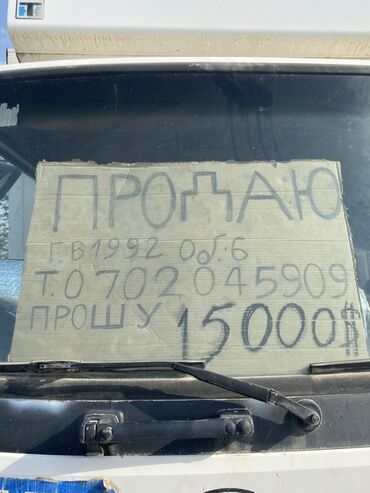 ПРОДАЮ
Г.В 1992 Об.6
Т.0702 045909
ПРОШУ 15000